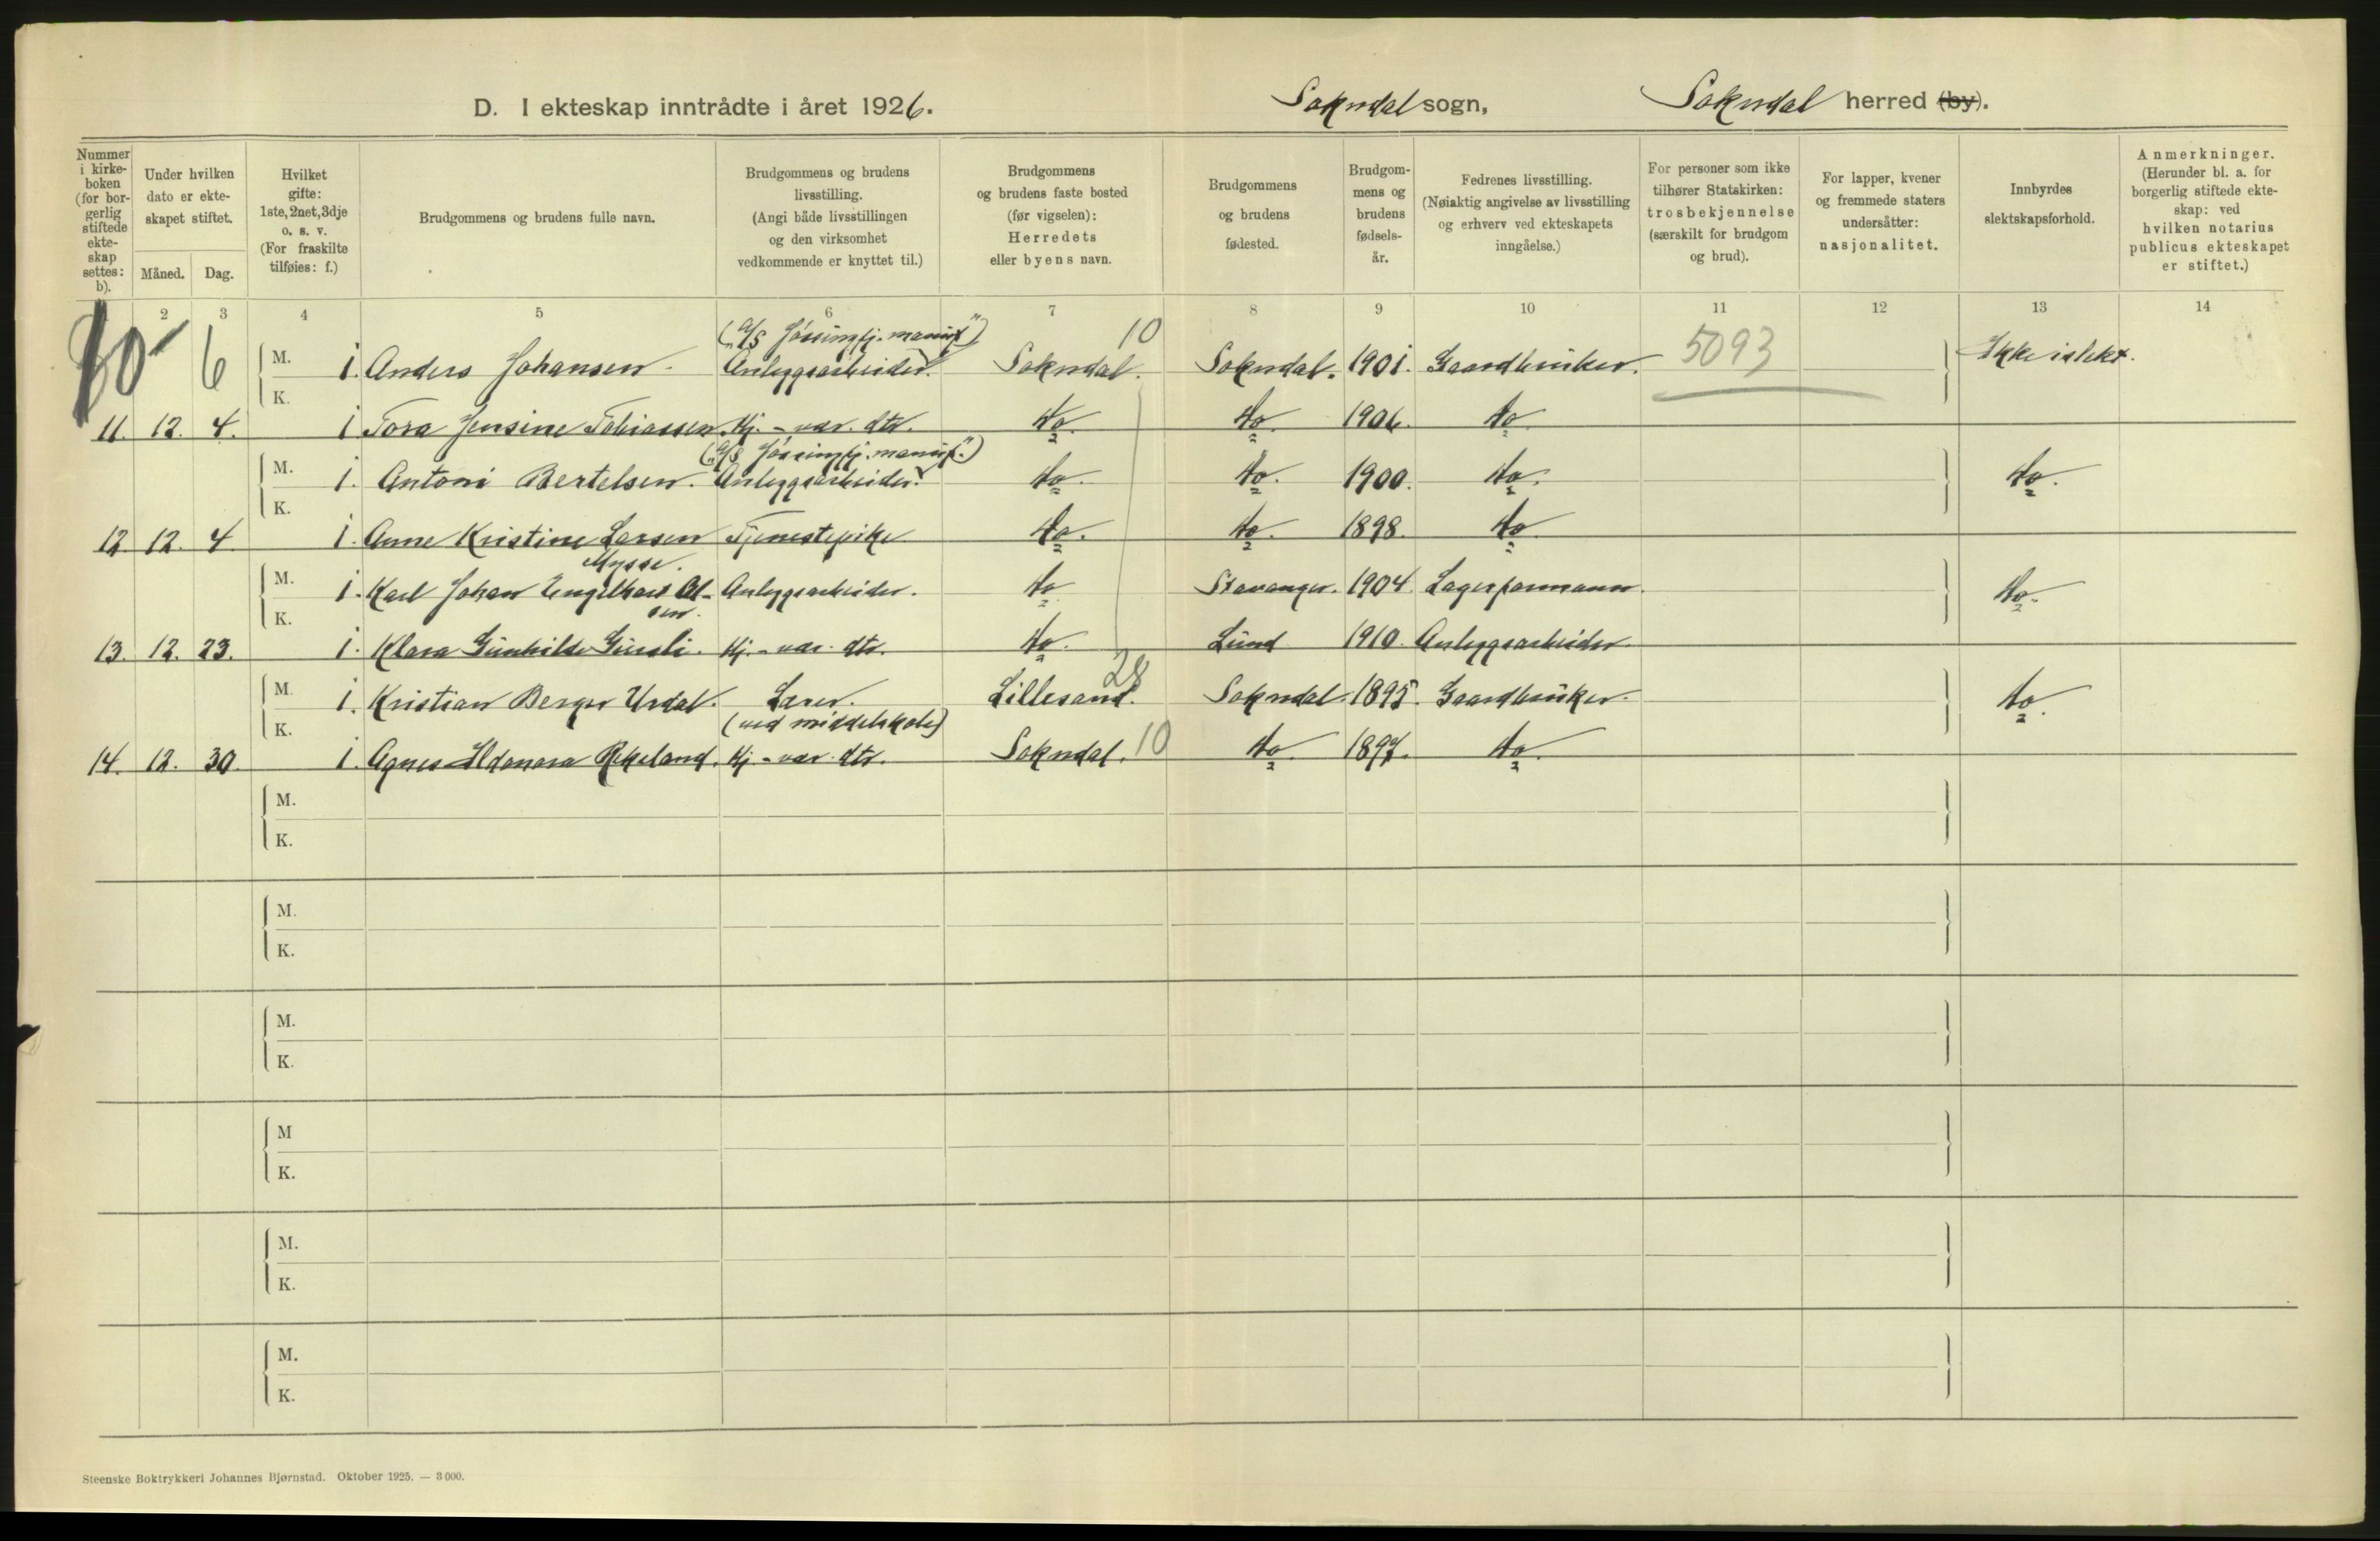 D. I ekteskap inntrådte i året 1926. Sokndal sogn, Sokndal herred (by).
Nummer i kirkeboken (for borgerlig stiftede ekteskap settes: b).
Under hvilken dato er ekteskapet stiftet.
Måned. Dag.
Hvilket gifte: 1ste, 2net, 3dje o. s. v. (For fraskilte tilføies: f.)
Brudgommens og brudens fulle navn.
Brudgommens og brudens livsstilling. (Angi både livsstillingen og den virksomhet vedkommende er knyttet til.)
Brudgommens og brudens faste bosted (før vigselen): Herredets eller byens navn.
Brudgommens og brudens fødested.
Brudgommens og brudens fødselsår.
Fedrenes livsstilling. (Nøiaktig angivelse av livsstilling og erhverv ved ekteskapets inngåelse.)
For personer som ikke tilhører Statskirken: trosbekjennelse (særskilt for brudgom og brud).
For lapper, kvener og fremmede staters undersåtter: nasjonalitet.
Innbyrdes slektskapsforhold.
Anmerkninger. (Herunder bl. a. for borgerlig stiftede ekteskap: ved hvilken notarius publicus ekteskapet er stiftet.)
2 3 4 5 6 7 8 9 10 11 12 13 14
6 10 5093
M. 1. Anders Johansen. Anleggsarbeider. Sokndal. Sokndal. 1901. Gaardbruker. Ikke i slekt.
K.
11. 12. 4. 1 Tora Jensine Tobiassen. Hj.-vær. dtr. do. do. 1906. do.
M. 1. Antoni Bertelsen. Anleggsarbeider. do. do. 1900. do. do.
K.
12 12. 4. 1. Anne Kristine Larsen Tjenestepike do. do. 1898. do.
M. 1. Karl Johan Engelhart Ol- Anleggsarbeider. do Stavanger. 1904. Lagerformann. do.
K. sen.
13. 12. 23. 1. Klara Gunhilde Hj.-vær. dtr. do. Lund 1910. Anleggsarbeider.
28
M. 1. Kristian Berger Urdal. Lærer. Lillesand. Sokndal. 1895. Gaardbruker. do.
K. (ved middelskole)
14. 12. 30. 1. Agnes Rekeland. Hj.-vær. dtr. Sokndal. 10 do. 1897. do.
M.
K.
M.
K.
M.
K.
M
K.
M.
K.
M.
K.
Steenske Boktrykkeri Johannes Bjørnstad. Oktober 1925. — 3 000.